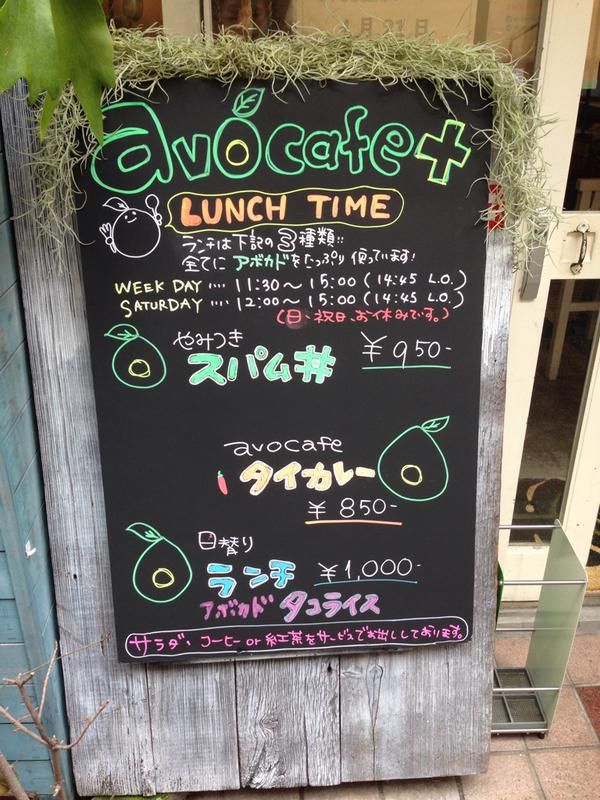 avocafe+
LUNCH TIME
ランチは下記の3種類!!
全てにアボカドをたっぷり使っています!
WEEK DAY .... 11:30〜15:00 (14:45 L.O.)
SATURDAY .... 12:00〜15:00 (14:45 L.O.)
(日、祝日、お休みです。)
やみつき
スパム丼 ¥950-
avocafe
タイカレー
¥850-
日替り
ランチ ¥1,000-
アボカド タコライス
サラダ・コーヒー or 紅茶をサービスでお出ししております。